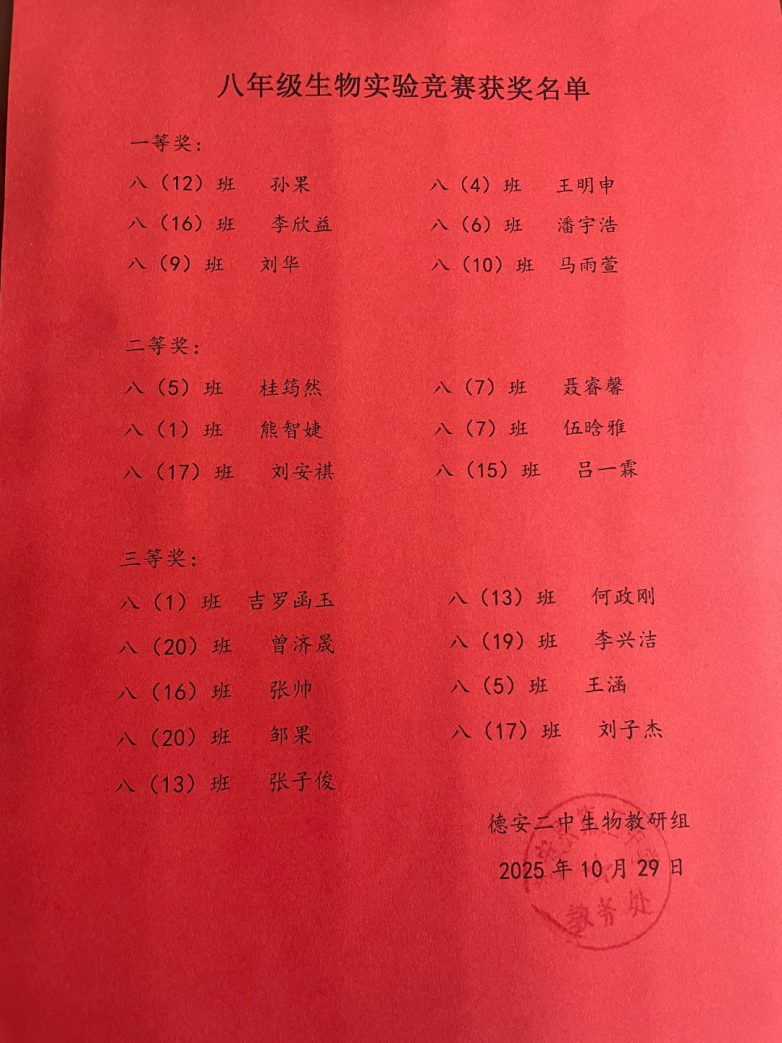 八年级生物实验竞赛获奖名单
一等奖：
八（12）班 孙果 八（4）班 王明申
八（16）班 李欣益 八（6）班 潘宇浩
八（9）班 刘华 八（10）班 马雨萱
二等奖：
八（5）班 桂筠然 八（7）班 聂睿馨
八（1）班 熊智婕 八（7）班 伍晗雅
八（17）班 刘安祺 八（15）班 吕一霖
三等奖：
八（1）班 吉罗函玉 八（13）班 何政刚
八（20）班 曾济晟 八（19）班 李兴洁
八（16）班 张帅 八（5）班 王涵
八（20）班 邹果 八（17）班 刘子杰
八（13）班 张子俊
德安二中生物教研组
2025年10月29日
教务处